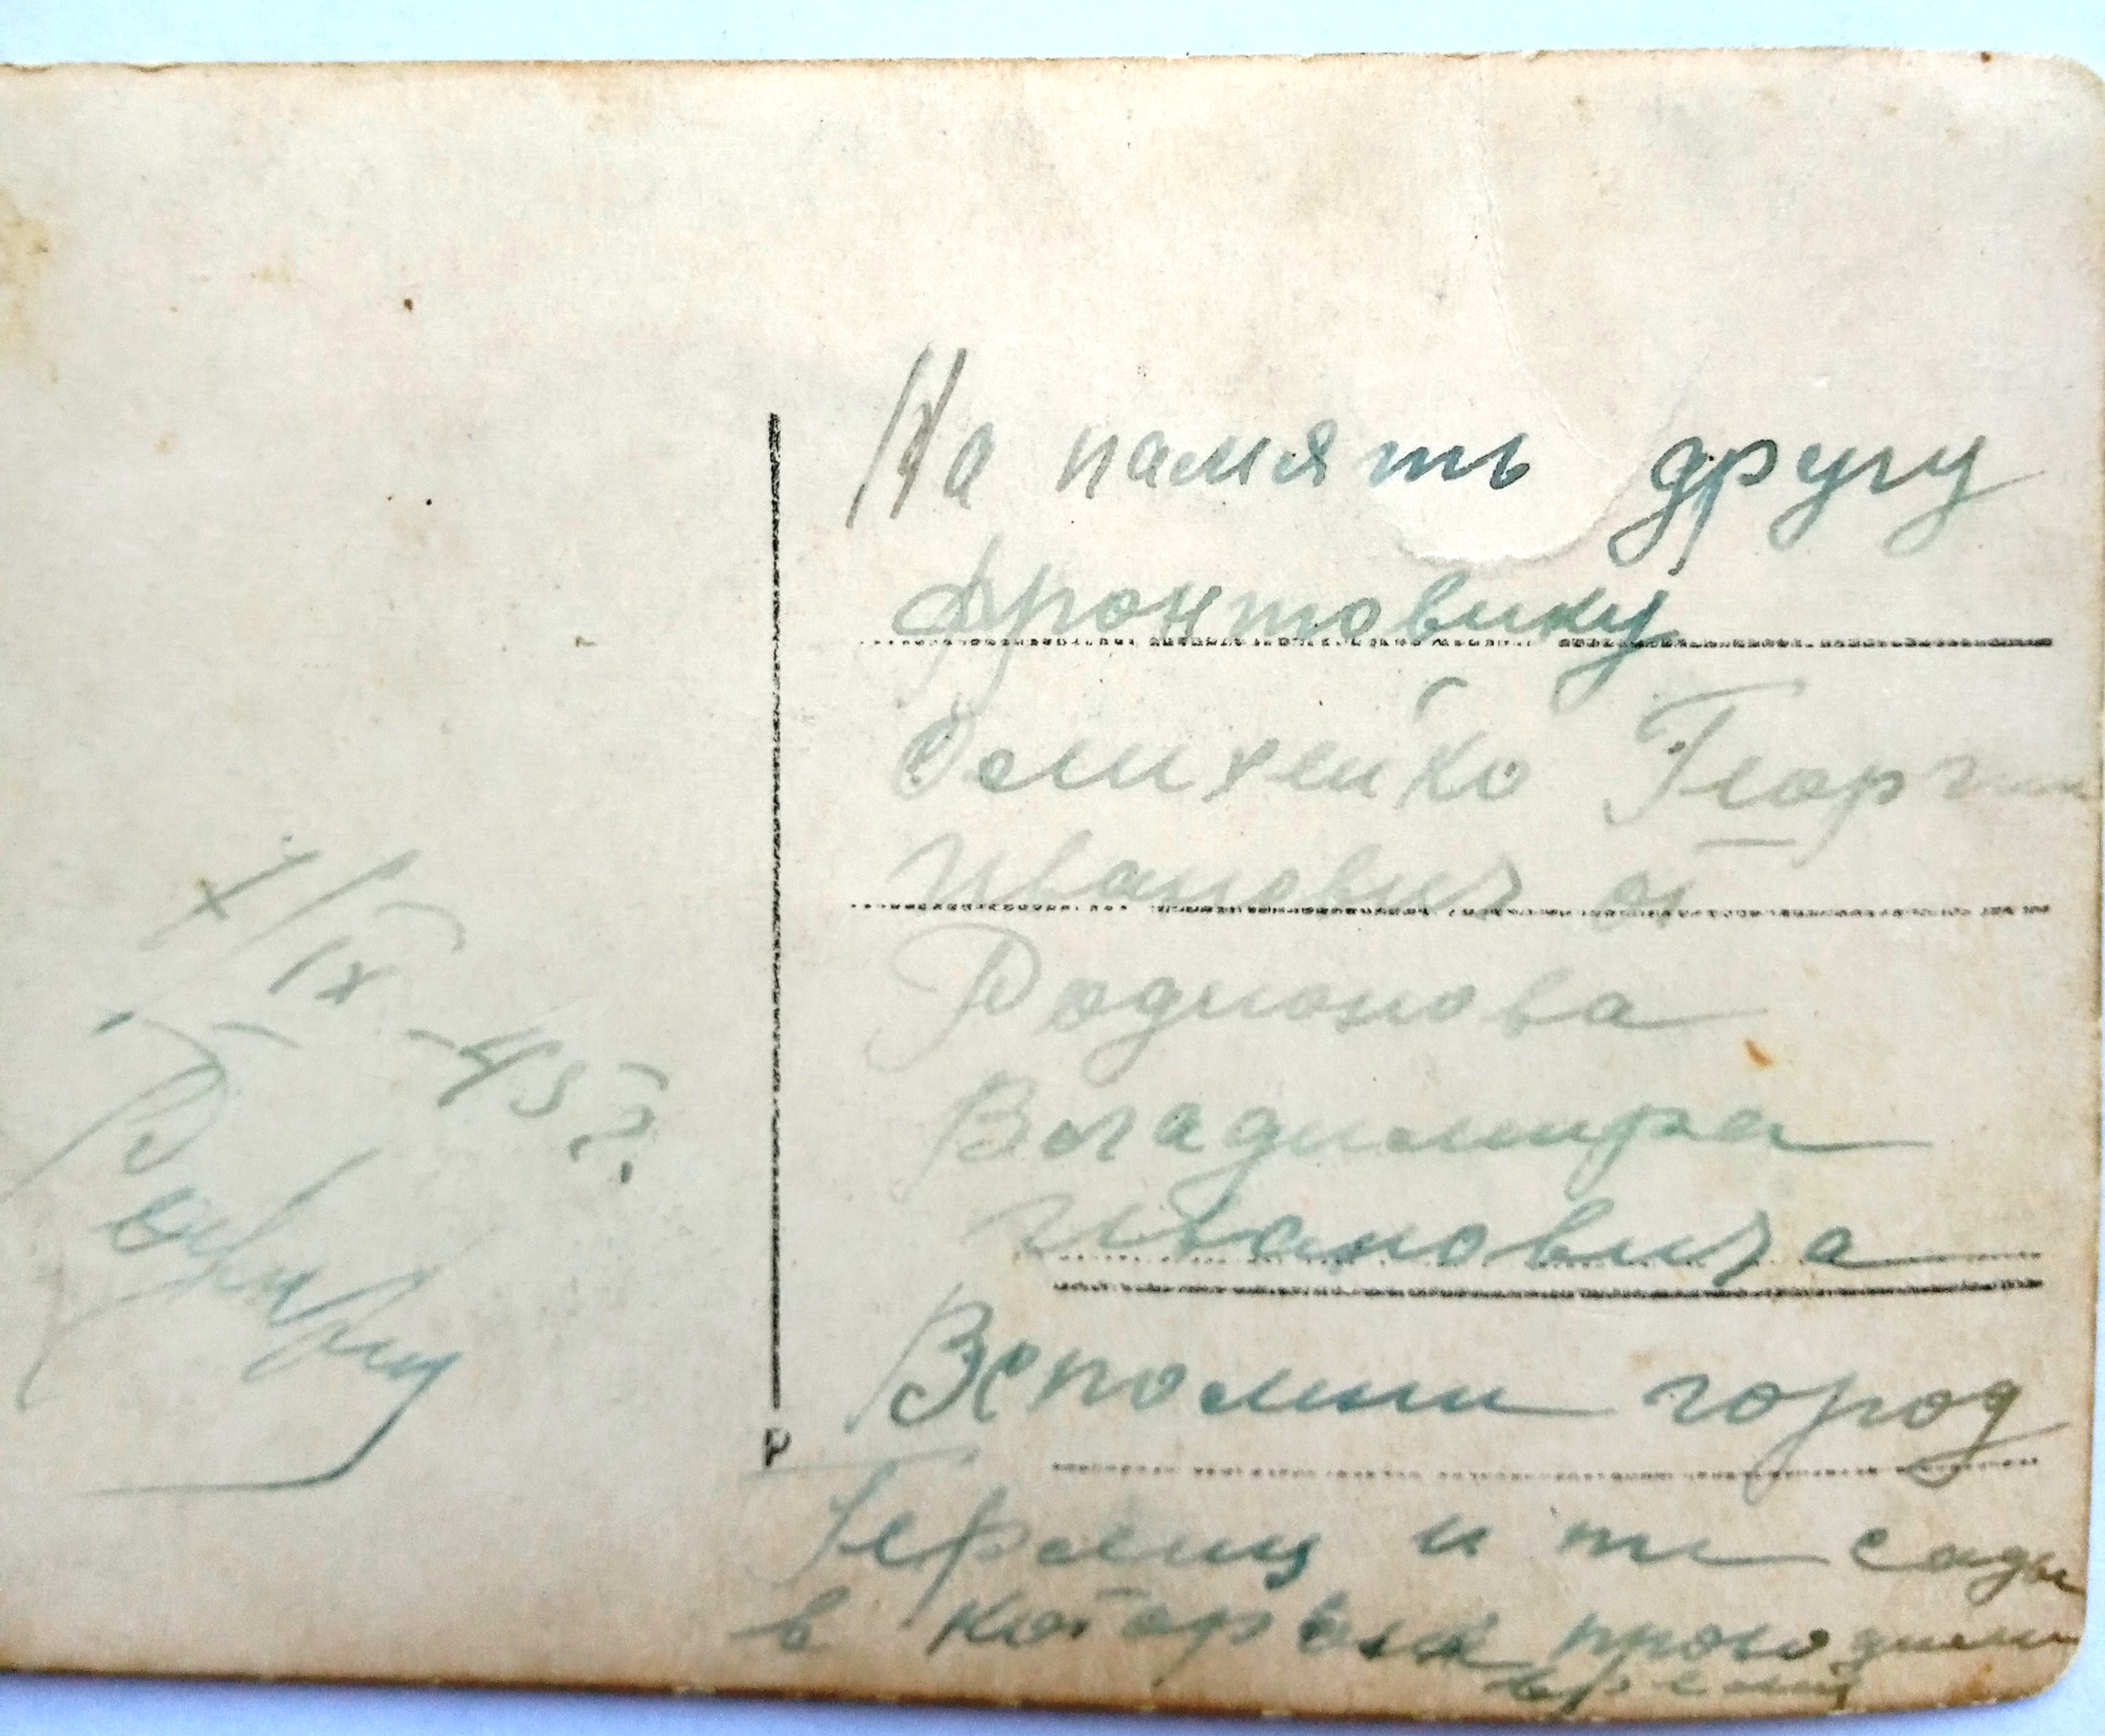 На память другу
фронтовику
Семхейко Георги
Иванович от
Родионова
Владимира
Ивановича
Вспомни город
и те сады
в которых проводили
время
X/IX-45г.
P